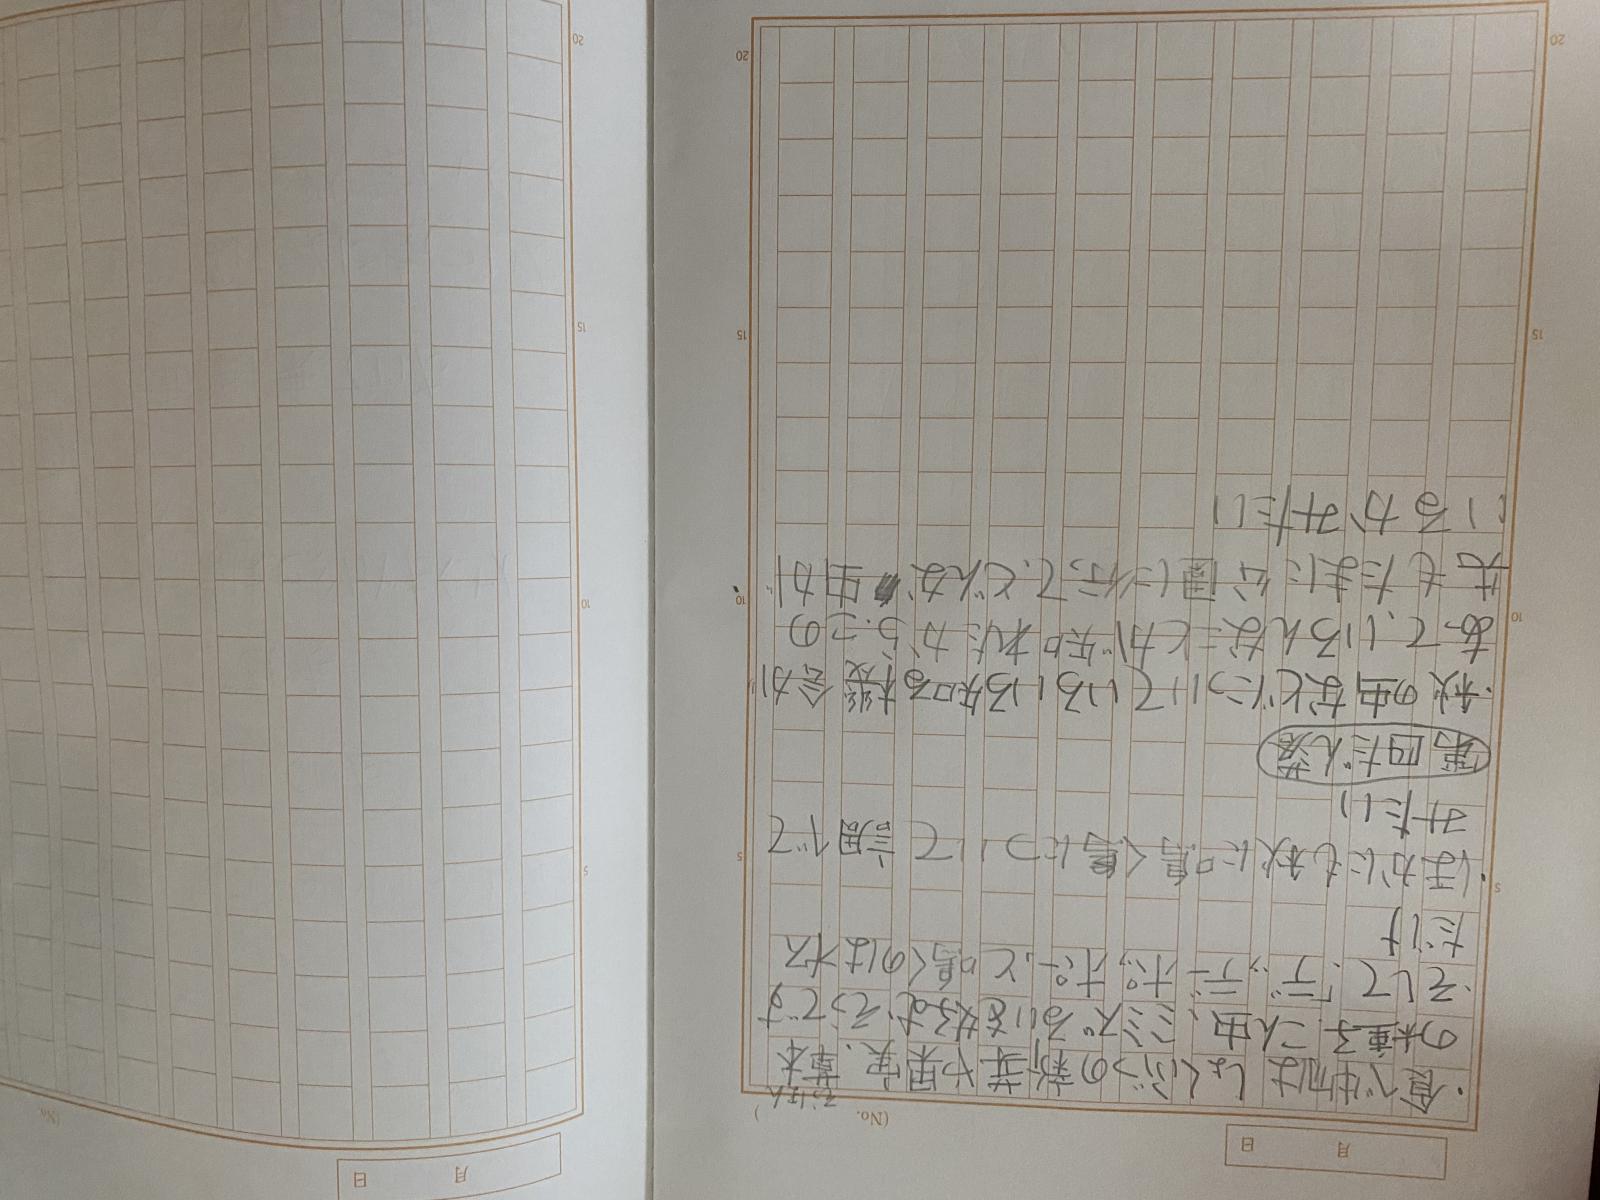 月 日
(No. )
そうほん
・食べ物はしょくぶつの新芽や果実、草本
の種子、こん虫、ミミズるいを好むそうです
・そして「デッデーポッポー、と鳴くのはオス
だけ
・ほかにも秋に鳴く鳥について調べて
みたい
第四だん落
・秋の虫などについていろいろ知る機会が
あって、いろんなことが知れたから、この
先もたまに公園に行って、どんな虫が
いるかみたい
5
10
15
20
5
10
15
20
月 日
(No.
5
10
15
20